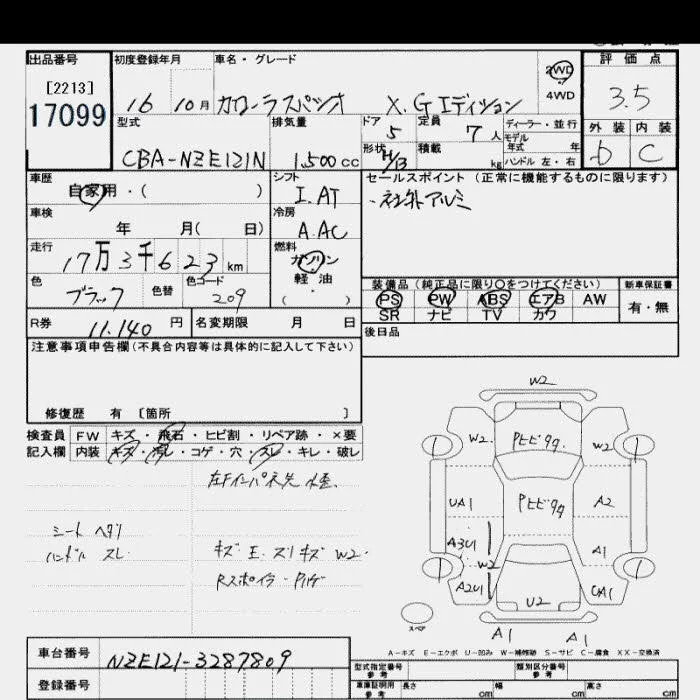 出品番号 初度登録年月 車名・グレード 評価点
[2213] 2WD
17099 16 10月 カローラスパシオ X.Gエディション 4WD 3.5
型式 排気量 ドア 5 定員 7人 ディーラー・並行 外装 内装
モデル年式 年
CBA-NZE121N 1,500cc 形状 H/B 積載 kg ハンドル 左・右 b C
車歴 シフト セールスポイント(正常に機能するものに限ります)
自家用・( ) I.AT ・社外アルミ
車検 冷房
年 月( 日) A.AC
走行 燃料
17万3千623km ガソリン
軽油
( )
色 色替 色コード 装備品(純正品に限り○をつけてください) 新車保証書
ブラック 209 PS PW ABS エアB AW 有・無
SR ナビ TV カワ
R券 11.140円 名変期限 月 日 後日品
注意事項申告欄(不具合内容等は具体的に記入して下さい)
修復歴 有 [箇所 ]
検査員 FW キズ・飛石・ヒビ割・リペア跡・×要
記入欄 内装 キズ・汚レ・コゲ・穴・スレ・キレ・破レ
シート ヘタリ
ハンドル スレ
キズ E. スリキズ W2.
Rスポイラー
W2
W2 W2
UA1 A2
A3U1 A1
W2
A2U1 U2 UA1
スペア A1 A1
A-キズ E-エクボ U-凹み W-補修跡 S-サビ C-腐食 XX-交換済
車台番号 NZE121-3287809
登録番号
型式指定番号 参考 類別区分番号 参考
車庫証明用 参考 長さ cm 幅 cm 高さ cm